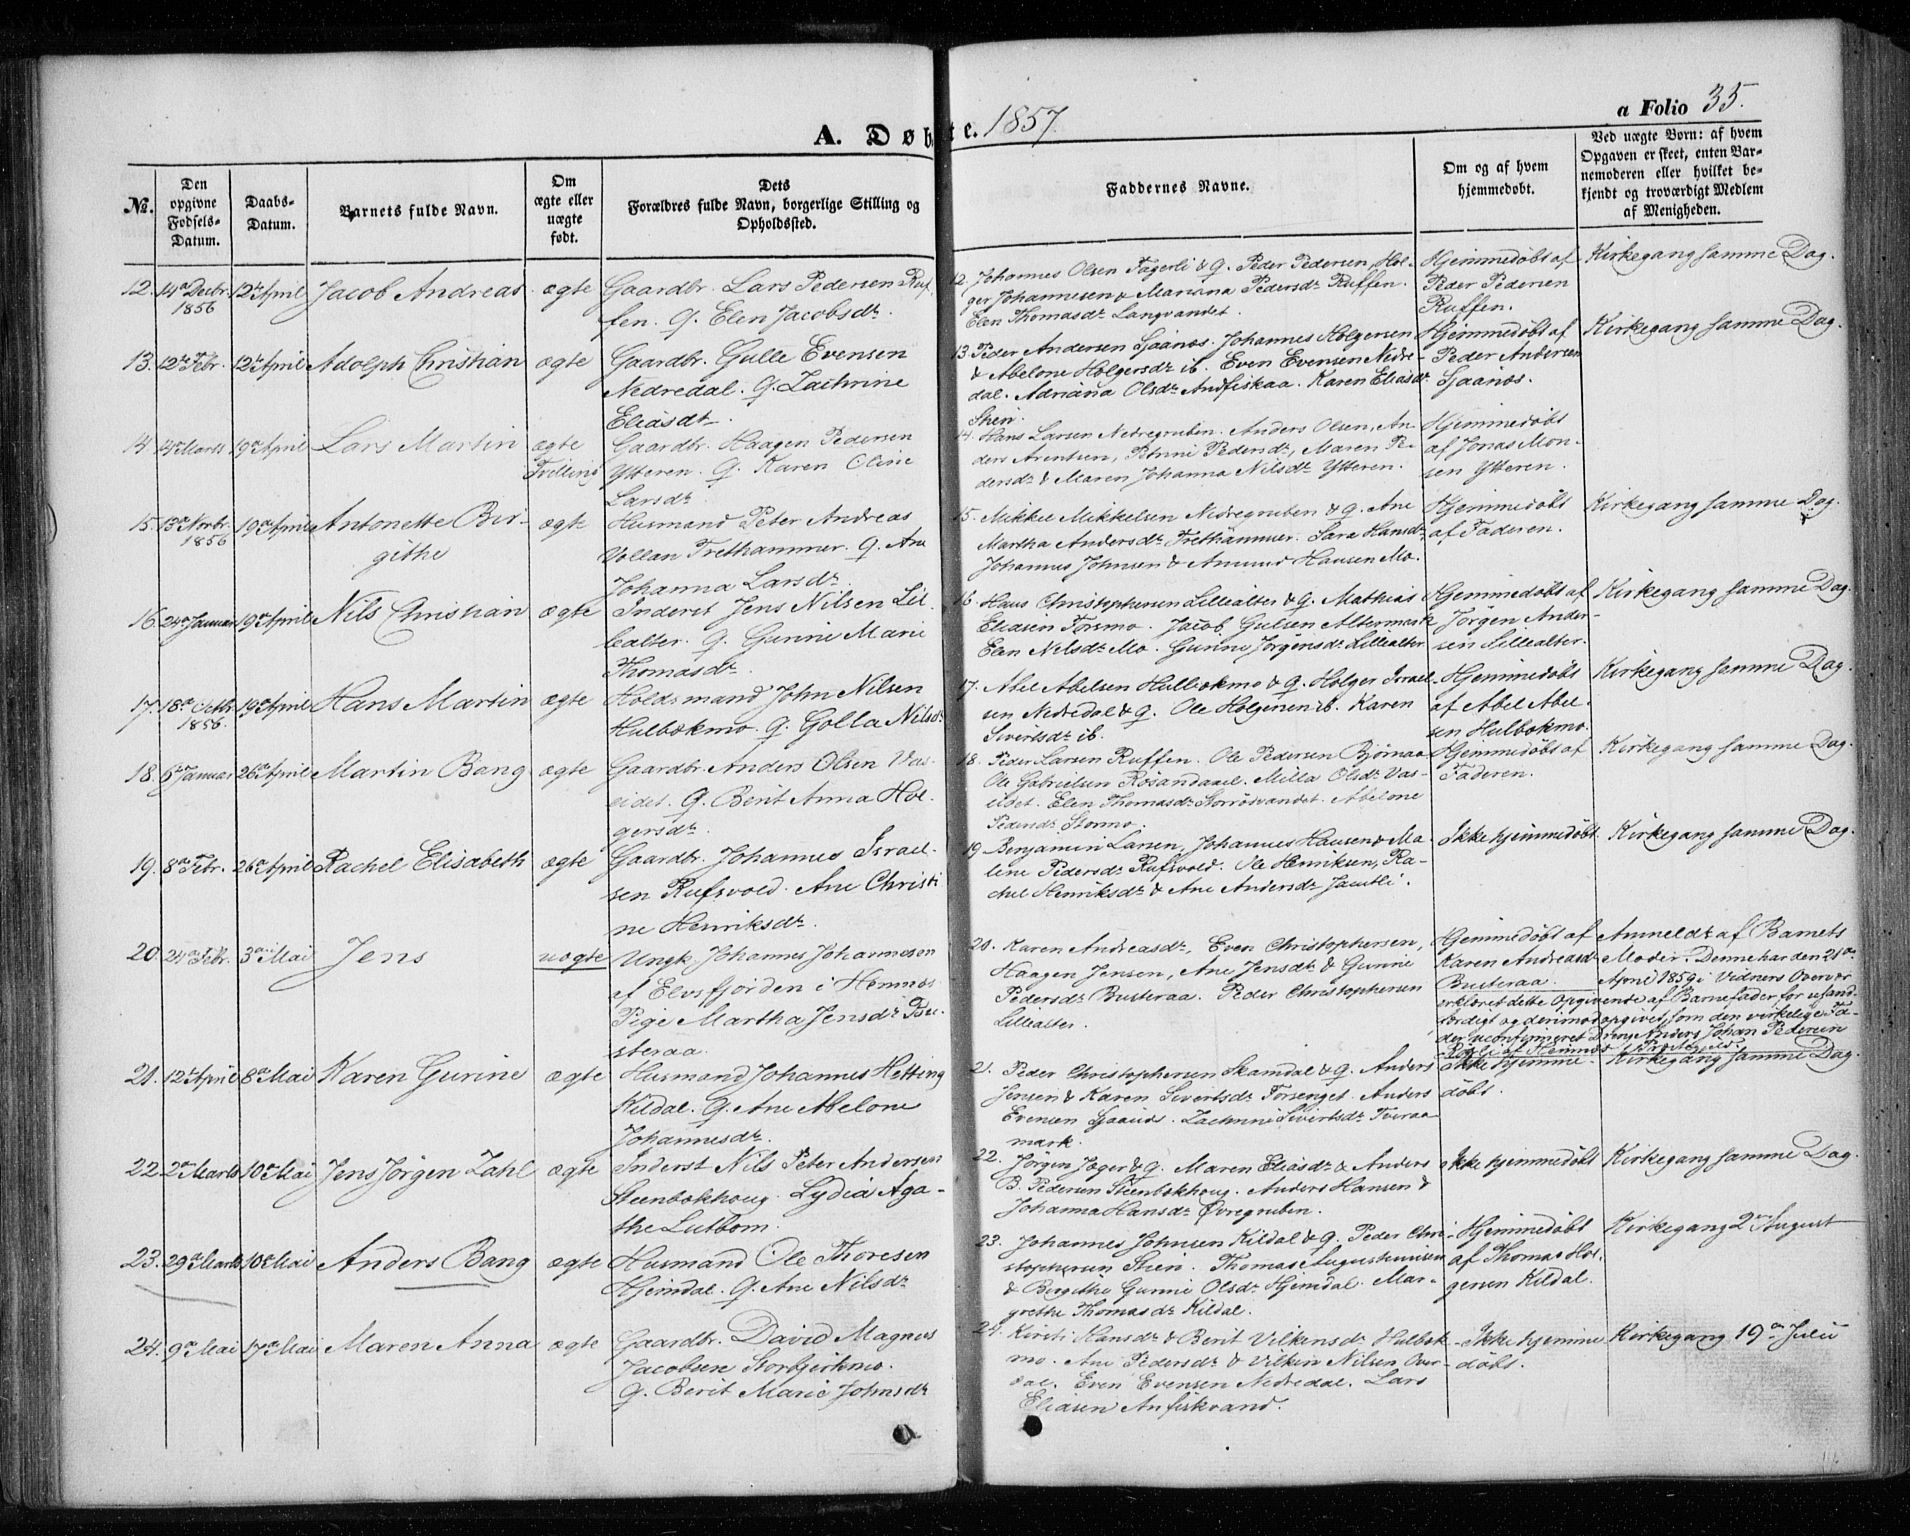 A. Døbte. 1857.
a Folio 35.
No.
Den opgivne Fødsels-Datum.
Daabs-Datum.
Barnets fulde Navn.
Om ægte eller uægte født.
Dets Forældres fulde Navn, borgerlige Stilling og Opholdssted.
Faddernes Navne.
Om og af hvem hjemmedøbt.
Ved uægte Børn: af hvem Opgaven er skeet, enten Barnemoderen eller hvilket bekjendt og troværdigt Medlem af Menigheden.
12. 14de Decbr. 1856 12te April Jacob Andreas. ægte
Gaardbr. Lars Pedersen Ruf-
fen. Q. Elen Jacobsdr.
12. Johannes Olsen Fagerli & Q. Peder Pedersen, Hol-
ger Johannesen & Mariana Pedersdr. Ruffen.
Elen Thomasdr. Langvandet.
Hjemmedøbt af
Peder Pedersen
Ruffen.
Kirkegang samme Dag.
13. 12te Febr. 12te April Adolph Christian ægte
Gaardbr. Gulle Evensen
Nedredal. Q. Zachrine
Eliasdr.
13. Peder Andersen Sjaanes. Johannes Holgersen
& Abelone Holgersdr. ib. Even Evensen Nedre-
dal. Adriana Olsdr. Andfiskaa. Karen Eliasdr.
Stien.
Hjemmedøbt af
Peder Andersen
Sjaanes.
Kirkegang samme Dag.
14. 14de Marts 19de April Lars Martin ægte
Tvilling
Gaardbr. Haagen Pedersen
Ytteren. Q. Karen Oline
Larsdr.
14. Hans Larsen Nedregruben. Anders Olsen, An-
ders Arentsen, Pedersdr., Maren Pe-
dersdr. & Maren Johanna Nilsdr. Ytteren.
Hjemmedøbt
af Jonas Mon-
sen Ytteren.
15. 13de Novbr. 1856 19de April Antonette Bir-
githe
ægte
Husmand Peter Andreas
Vollan Trethammer. Q. Ane
Johanna Larsdr.
15. Mikkel Mikkelsen Nedregruben & Q. Ane
Martha Andersdr. Trethammer. Sara Hansdr.
Johannes Johnsen & Amund Hansen Mo.
Hjemmedøbt
af Faderen.
Kirkegang samme Dag.
16. 24de Januar 19de April Nils Christian ægte
Inderst Jens Nilsen Lil-
lealter. Q. Gurine Marie
Thomasdr.
16. Hans Christophersen Lillealter & Q. Mathias
Eliasen Forsmo. Jacob Gulsen Altermark
Elen Nilsdr. Mo. Gunni Jørgensdr. Lillealter
Hjemmedøbt af
Jørgen Ander-
sen Lillealter.
Kirkegang samme Dag.
17. 18de Octbr. 1856. 19de April Hans Martin ægte
Holdsmand John Nilsen
Hulbækmo. Q. Golla Nilsdr.
17. Abel Abelsen Hulbækmo & Q. Holger Israel-
sen Nedredal & Q. Ole Holgersen ib. Karen
Sivertsdr. ib.
Hjemmedøbt
af Abel Abel-
sen Hulbækmo.
Kirkegang samme Dag.
18. 6te Januar 26de April Martin Bang ægte
Gaardbr. Anders Olsen Vas-
eidet. Q. Berit Anna Hol-
gersdr.
18. Peder Larsen Ruffen. Ole Pedersen Bjørnaa
Ole Gabrielsen Røsandaael. Milla Olsdr. Vas-
eidet. Elen Thomasdr. Storrøsvandet. Abelone
Pedersdr. Stormo.
Hjemmedøbt af
Faderen.
Kirkegang samme Dag.
19. 8de Febr. 26de April Rachel Elisabeth ægte
Gaardbr. Johannes Israel-
sen Rufsvold. Ane Christi
ne Henriksdr.
19 Benjamin Larsen, Johannes Hansen & Ma-
line Pedersdr. Rufsvold. Ole Henriksen, Ra-
chel Henriksdr. & Ane Andersdr. Jamtli.
Ikke hjemmedøbt.
Kirkegang samme Dag.
20. 24de Febr. 3die Mai Jens uægte
Ungk. Johannes Johannesen
af Elvsfjorden i Hemnæs
Pige Martha Jensdr. Bu-
steraa.
20. Karen Andreasdr., Even Christophersen,
Haagen Jensen, Ane Jensdr. & Gurine
Pedersdr. Busteraa. Peder Christophersen
Lillealter.
Hjemmedøbt af
Karen Andreasdr.
Busteraa.
Anmeldt af Barnets
Moder. Denne har den 21de
April 1859 i Vidners Overvær
erklæret dette Opgivende af Barnefader for usand-
færdigt og derimod opgivet, som den virkelige Fa-
der, uconfirmeret Drenge Anders Johan Pedersen
af Hemnæs Præstegield.
21. 12te April 8de Mai Karen Gurine ægte
Husmand Johannes Hetting
Kildal. Q. Ane Abelone
Johannesdr.
21. Peder Christophersen Skamdal & Q. Anders
Jensen & Karen Sivertsdr. Forsenget. Anders
Evensen Sjaanes. Zachrine Sivertsdr. Tveraa-
mark.
Ikke hjemme-
døbt.
Kirkegang samme Dag.
22. 2den Marts 10de Mai Jens Jørgen Zahl ægte
Inderst Nils Peter Andersen
Steenbækhoug. Lydia Aga-
the Lutbom.
22. Jørgen Jæger & Q. Maren Eliasdr. & Anders
B. Pedersen Steenbækhoug. Anders Hansen &
Johanna Hansdr. Øvregruben.
Ikke hjemmedøbt
Kirkegang samme Dag.
23. 29de Marts 10de Mai Anders Bang ægte
Husmand Ole Thoresen
Hjemdal. Q. Ane Nilsdr.
23. Johannes Johnsen Kildal & Q. Peder Chri-
stophersen Stien. Thomas Augustinusen
& Birgithe Gurine Olsdr. Hjemdal. Mar-
grethe Thomasdr. Kildal.
Hjemmedøbt
af Thomas Hol-
gersen Kildal.
Kirkegang 2den August
24. 9de Mai 17de Mai Maren Anna ægte
Gaardbr. David Magnus
Jacobsen Storbjerkmo.
Q. Berit Marie Johnsdr.
24. Kirsti Hansdr. & Berit Vilkensdr. Hulbæk-
mo. Ane Pedersdr. & Vilkin Nilsen Over-
dal. Even Evensen Nedredal. Lars
Eliasen Anfiskvand.
Ikke hjemme
døbt.
Kirkegang 19de Julii